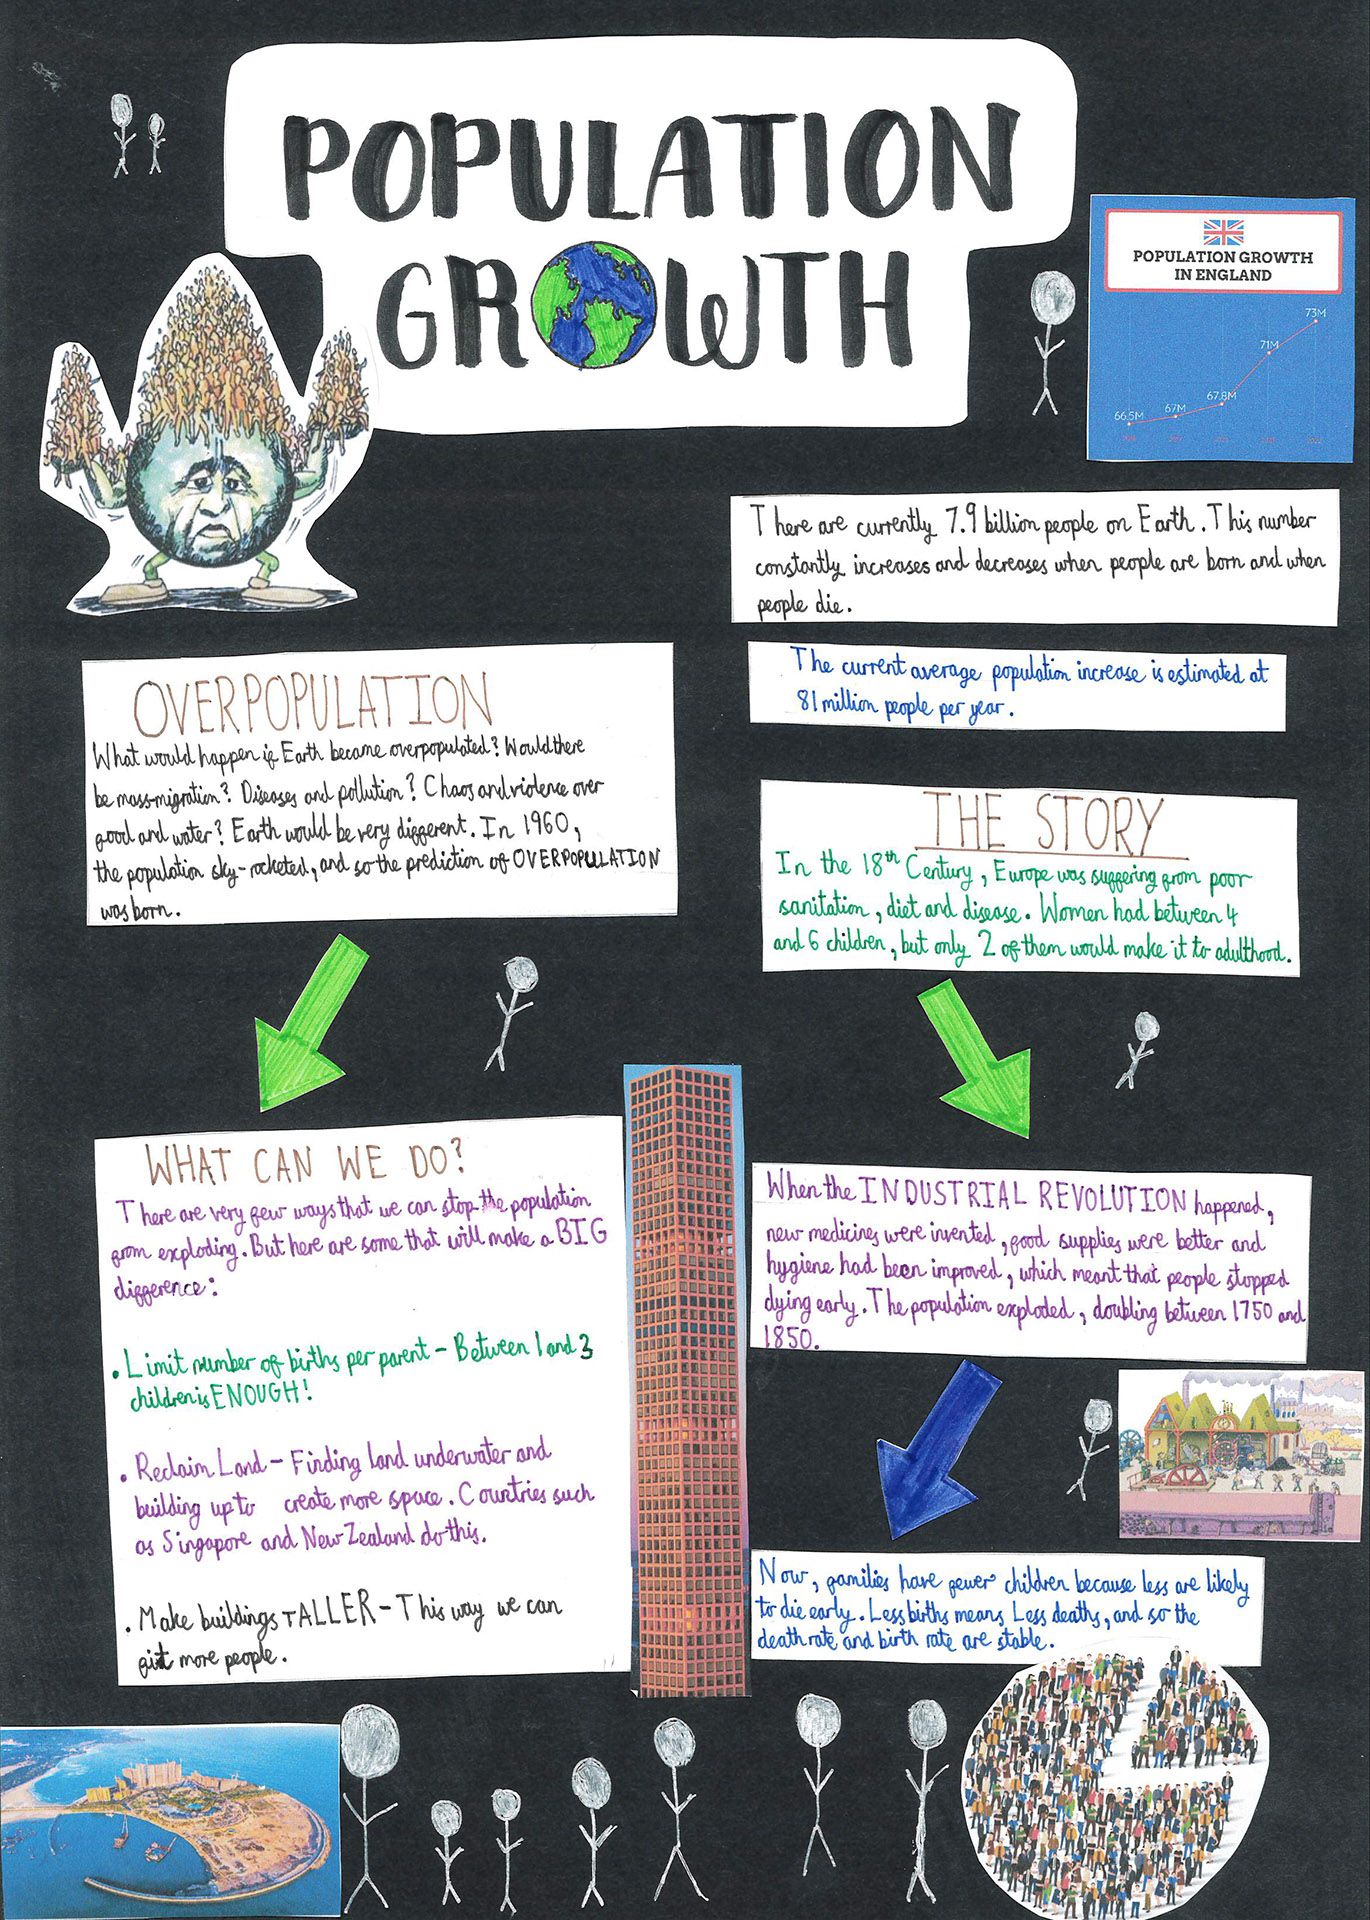 POPULATION
GROWTH
POPULATION GROWTH
IN ENGLAND
73M
71M
67.8M
67M
66.5M
There are currently 7.9 billion people on Earth. This number
constantly increases and decreases when people are born and when
people die.
The current average population increase is estimated at
81 million people per year.
OVERPOPULATION
What would happen if Earth became overpopulated? Would there
be mass-migration? Diseases and pollution? Chaos and violence over
food and water? Earth would be very different. In 1960,
the population sky-rocketed, and so the prediction of OVERPOPULATION
was born.
THE STORY
In the 18th Century, Europe was suffering from poor
sanitation, diet and disease. Women had between 4
and 6 children, but only 2 of them would make it to adulthood.
WHAT CAN WE DO?
There are very few ways that we can stop the population
from exploding. But here are some that will make a BIG
difference:
• Limit number of births per parent - Between 1 and 3
children is ENOUGH!
• Reclaim Land - Finding land underwater and
building up to create more space. Countries such
as Singapore and New Zealand do this.
• Make buildings TALLER - This way we can
fit more people.
When the INDUSTRIAL REVOLUTION happened,
new medicines were invented, food supplies were better and
hygiene had been improved, which meant that people stopped
dying early. The population exploded, doubling between 1750 and
1850.
Now, families have fewer children because less are likely
to die early. Less births means Less deaths, and so the
death rate and birth rate are stable.